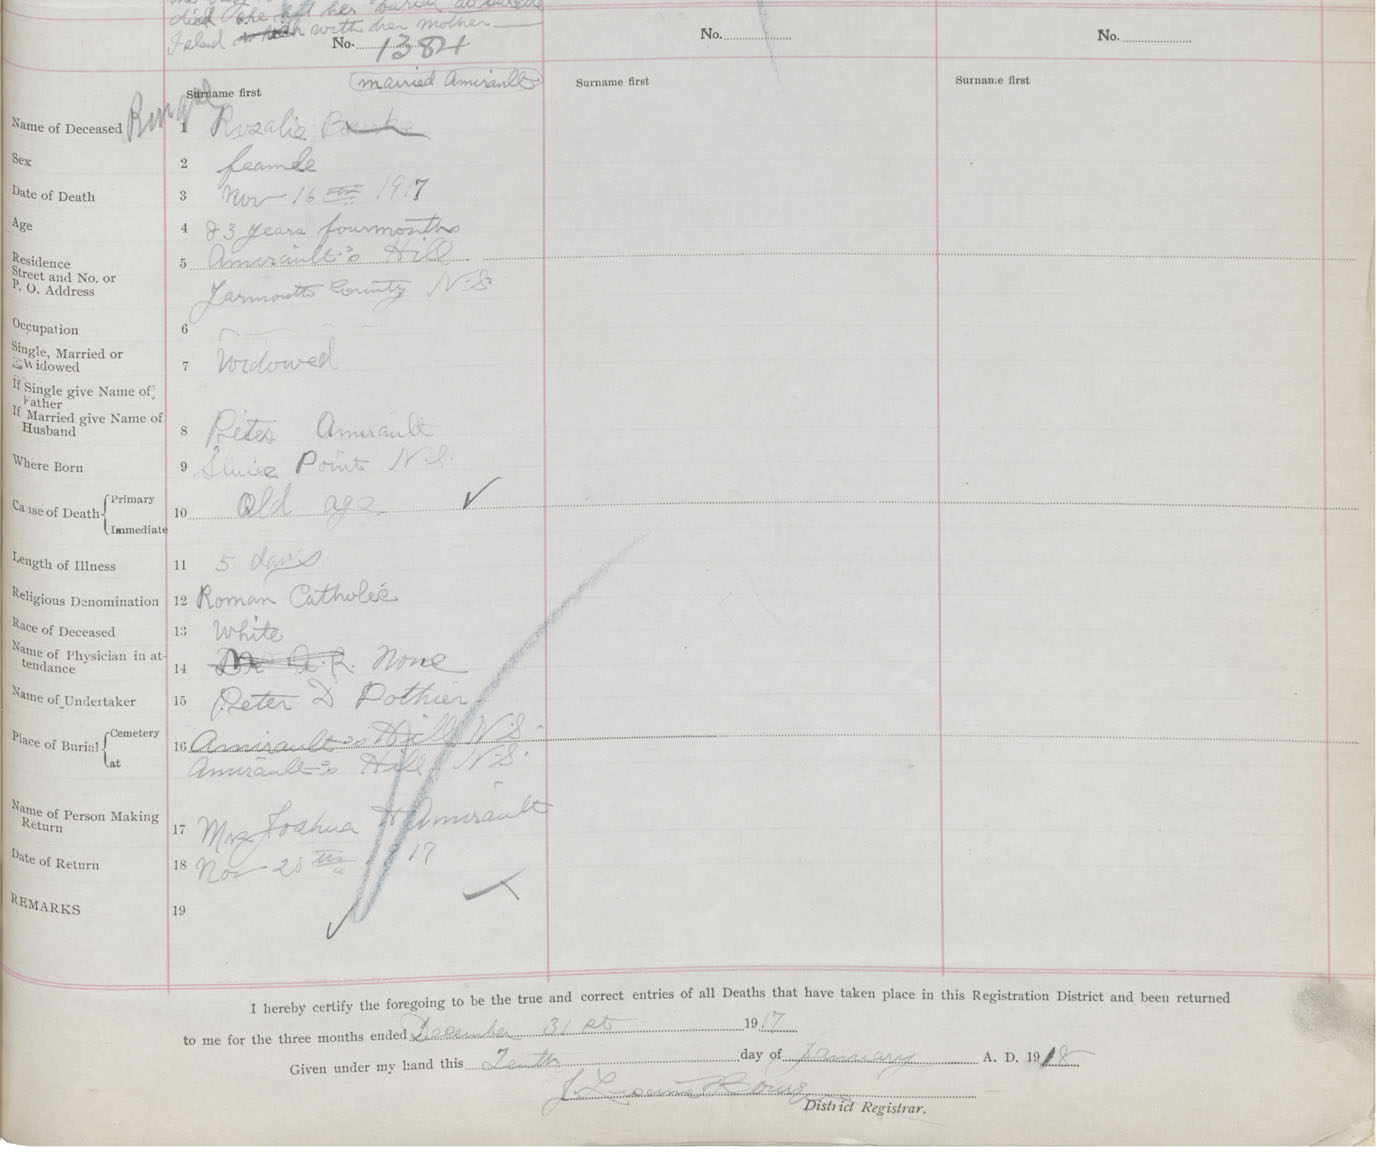 died she had her burial at Surette
Island with her mother
No. 1384
No.
No.
married Amirault
Surname first
Surname first
Surname first
Name of Deceased 1 Rozalie Bourke
Sex 2 feamle
Date of Death 3 Nov 16th 1917
Age 4 83 years four months
Residence
Street and No. or
P. O. Address
5 Amirault's Hill
Yarmouth County N.S
Occupation 6
Single, Married or
Widowed
7 Widowed
If Single give Name of
Father
If Married give Name of
Husband
8 Peter Amirault
Where Born 9 Sluice Point N.S.
Cause of Death Primary
Immediate
10 Old age
Length of Illness 11 5 days
Religious Denomination 12 Roman Catholic
Race of Deceased 13 White
Name of Physician in at-
tendance
14 Dr A.R. None
Name of Undertaker 15 Peter D Pothier
Place of Burial Cemetery
at
16 Amirault's Hill N.S.
Amirault's Hill N.S.
Name of Person Making
Return
17 Mrs Joshua H Amirault
Date of Return 18 Nov 20th 1917
REMARKS 19
I hereby certify the foregoing to be the true and correct entries of all Deaths that have taken place in this Registration District and been returned
to me for the three months ended December 31st 1917
Given under my hand this Tenth day of January A. D. 1918
District Registrar.